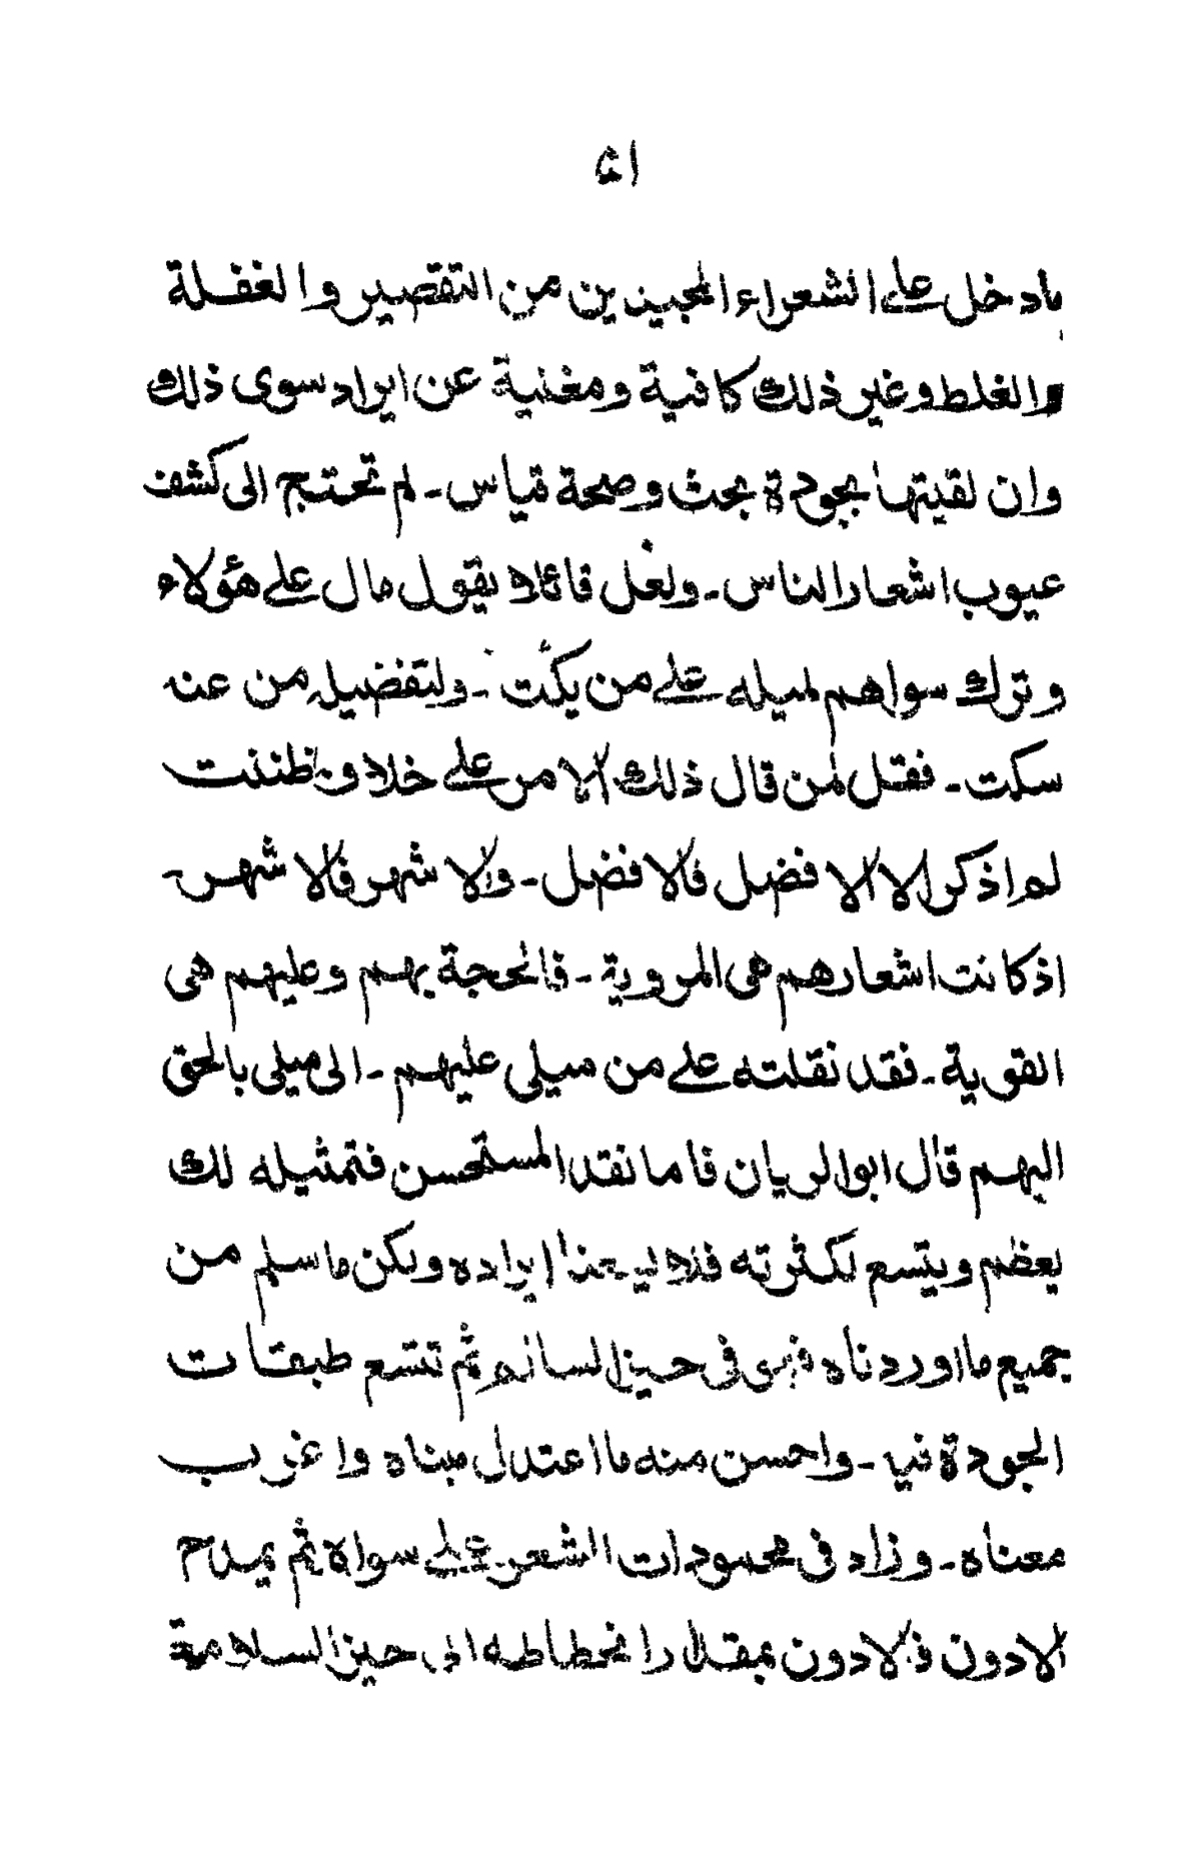 ۵۱
بادخل على الشعراء المجيدين من التقصير والغفلة
والغلط وغير ذلك كافية ومغنية عن ايراد سوى ذلك
وان لقيتها بجودة بحث وصحة قياس۔ لم تحتج الى كشف
عيوب اشعار الناس۔ ولعل قائلا يقول مال على هؤلاء
وترك سواهم لميله على من بكت۔ ولتفضيله من عنه
سكت۔ فقل لمن قال ذلك الامر على خلاف ظننت
لم اذكر الا الافضل فالافضل۔ والاشهر فالاشهر۔
اذ كانت اشعارهم هى المروية۔ فالحجة بهم وعليهم هى
القوية۔ فقد نقلته على من ميلى عليهم۔ الى ميلى بالحق
اليهم قال ابوالريان فاما نقد المستحسن فتمثيله لك
يعظم ويتسع لكثرته فلا ايراده ولكن ماسلم من
جميع ما اوردناه فى حيز السالم ثم تتسع طبقات
الجودة فيه۔ واحسن منه ما اعتدل مبناه واغرب
معناه۔ وزاد فى محمودات الشعر على سواه ثم يمدح
الادون فالادون بمقدار انحطاطه الى حيز السلامة